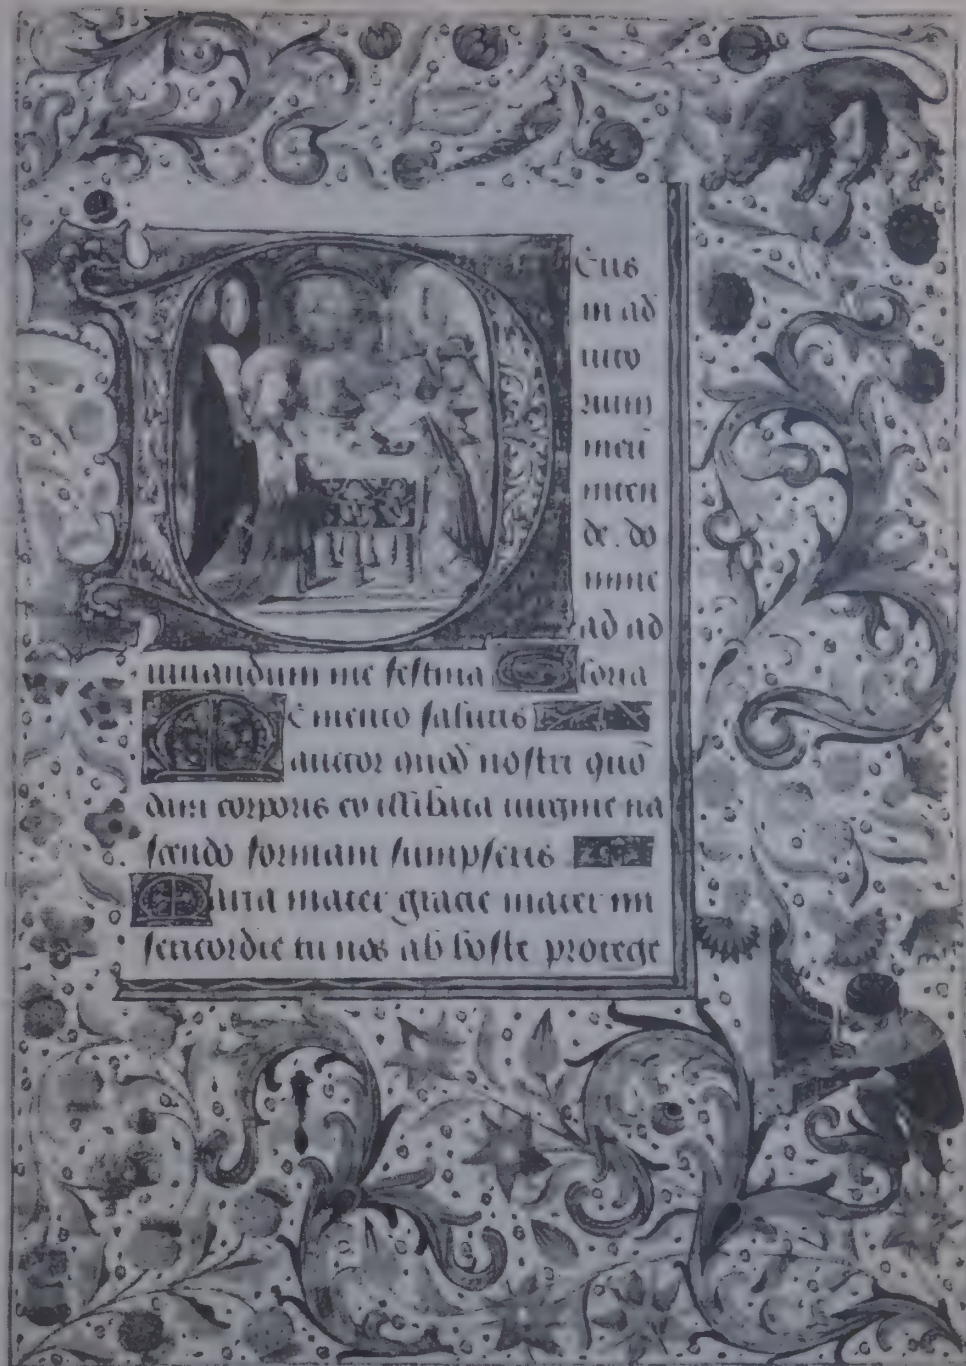 Deus
in ad
iuto
rium
meū
inten
de. do
mine
ad ad
iuuandum me festina Gloria
Memento salutis
auctor quod nostri quō
dam corporis ex illibata uirgine na
scendo formam sumpseris
Maria mater gracie mater mi
sericordie tu nos ab hoste protege